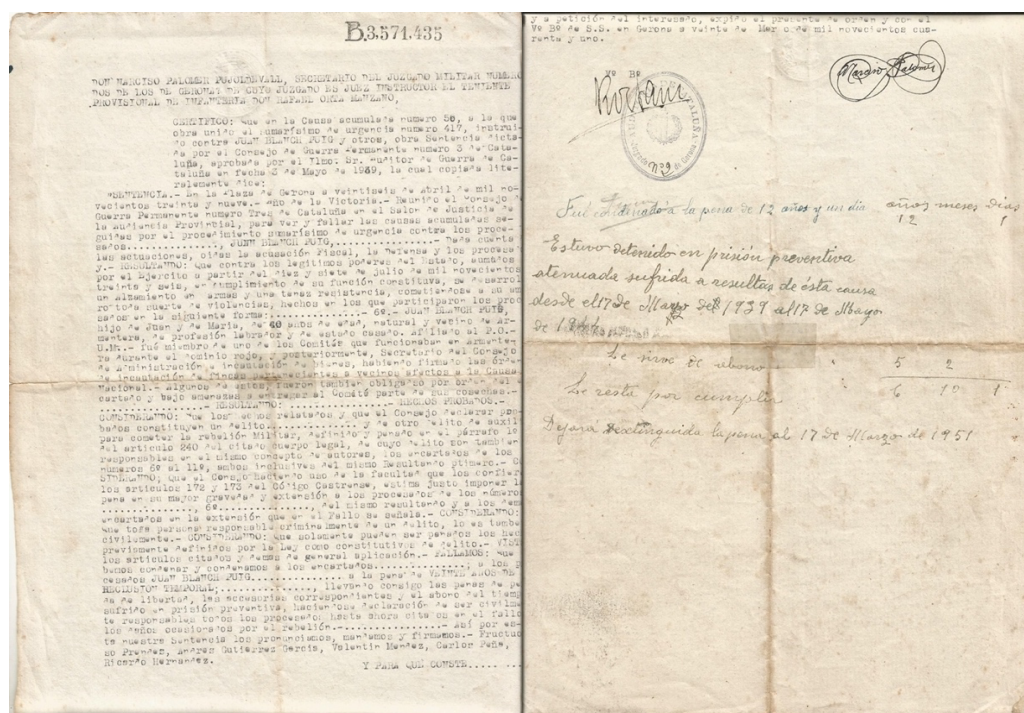 B.3.571.435
DON NARCISO PALOMER PUJOLDEVALL, SECRETARIO DEL JUZGADO MILITAR NUMERO
DOS DE LOS DE GERONA DE CUYO JUZGADO ES JUEZ INSTRUCTOR EL TENIENTE
PROVISIONAL DE INFANTERIA DON RAFAEL ORTA MANZANO,
CERTIFICO: Que en la Causa acumulada numero 56, a la que
obra unido el sumarísimo de urgencia numero 417, instrui-
do contra JUAN BLANCH PUIG y otros, obra Sentencia dicta-
da por el Consejo de Guerra Permanente numero 3 de Cata-
luña, aprobada por el Ilmo. Sr. Auditor de Guerra de Ca-
taluña en fecha 3 de Mayo de 1939, la cual copiada lite-
ralemente dice:
"SENTENCIA.- En la Plaza de Gerona a veintiseis de Abril de mil no-
vecientos treinta y nueve.- Año de la Victoria.- Reunido el Consejo de
Guerra Permanente numero Tres de Cataluña en el Salon de Justicia de
la Audiencia Provincial, para ver y fallar las causas acumuladas se-
guidas por el procedimiento sumarísimo de urgencia contra los proce-
sados.............., JUAN BLANCH PUIG,..............- Dada cuenta
las actuaciones, oidas la acusación Fiscal, la Defensa y los procesa
y.- RESULTANDO: Que contra los legitimos poderes del Estado, asumidos
por el Ejército a partir del diez y siete de julio de mil novecientos
treinta y seis, en cumplimiento de su función constituva, se desarrol
un alzamiento en armas y una tenaz resistencia, cometiéndose a su am
ro toda suerte de violencias, hechos en los que participaron los proc
sados en la siguiente forma:..............- 6º.- JUAN BLANCH PUIG,
hijo de Juan y de Maria, de 40 años de edad, natural y vecino de Ar-
mentera, de profesión labrador y de estado casado. Afiliado al P.O.
U.M.- fué miembro de uno de los Comités que funcionaban en Armente
ra durante el dominio rojo, y posteriormente, Secretario del Consejo
de Administración e incautación de bienes, habiendo firmado las órden
de incautación de fincas pertenecientes a vecinos afectos a la Causa
Nacional.- Algunos de estos, fueron tambien obligaso por orden del e
cartado y bajo amenazas a entregar al Comité parte de sus cosechas.-
..............- RESULTANDO: ..............- HECHOS PROBADOS.-
CONSIDERANDO: Que los hechos relatados y que el Consejo declarar pro
bados constituyen un delito.............- y de otro delito de auxil
para cometer la rebelión Militar, definido y penado en el párrafo 1º
del articulo 240 del citado cuerpo legal, de cuyo delito son tambien
responsables en el mismo concepto de autores, los encartados de los
números 6º al 11º, ambos inclusives del mismo Resultando ptimero.- CO
SIDERANDO; que el Consejo haciendo uso de la facultad que los confiere
los articulos 172 y 173 del Código Castrense, estima justo imponer l
pena en su mayor gravedad y extensión a los procesados de los números
.............., 6º.............., del mismo resultando y a los dem
encartados en la extensión que en el Fallo se señala.- CONSIDERANDO:
que toda persona responsable criminalmente de un delito, lo es tambie
civilmente.- CONSIDERANDO: Que solamente pueden ser penados los hec
previamente definidos por la Ley como constitutivos de delito.- VIST
los articulos citados y demas de general aplicación.- FALLAMOS: Que
bemos condenar y condenamos a los encartados..............; a los p
cesados JUAN BLANCH PUIG.............. a la pena de VEINTE AÑOS DE
RECLUSION TEMPORAL;.............., llevando consigo las penas de pe
da de libertad, las accesorias correspondientes y el abono del tiemp
sufrido en prisión preventiva, haciendose declaración de ser civilme
te responsables todos los procesados hasta ahora citados en el fallo
los daños ocasionados por el rebelión.- ..............- Así por es-
ta nuestra Sentencia los pronunciamos, mandamos y firmamos.- Fructuo
so Prendes, Andres Gutierrez Garcia, Valentin Mendez, Carlos Peña,
Ricardo Hernandez.
Y PARA QUE CONSTE.......
y a petición del interesado, expido el presente de orden y con el
Vº Bº de S.S. en Gerona a veinte de Marzo de mil novecientos cua-
renta y uno.
Vº Bº
Narciso Palomer
Fué condenado a la pena de 12 años y un dia años meses dias
12 1
Estuvo detenido en prisión preventiva
atenuada sufrida a resultas de esta causa
desde el 17 de Marzo de 1939 al 17 de Mayo
de 1944
Le sirve de abono 5 2
Le resta por cumplir 6 10 1
Dejará extinguida la pena al 17 de Marzo de 1951